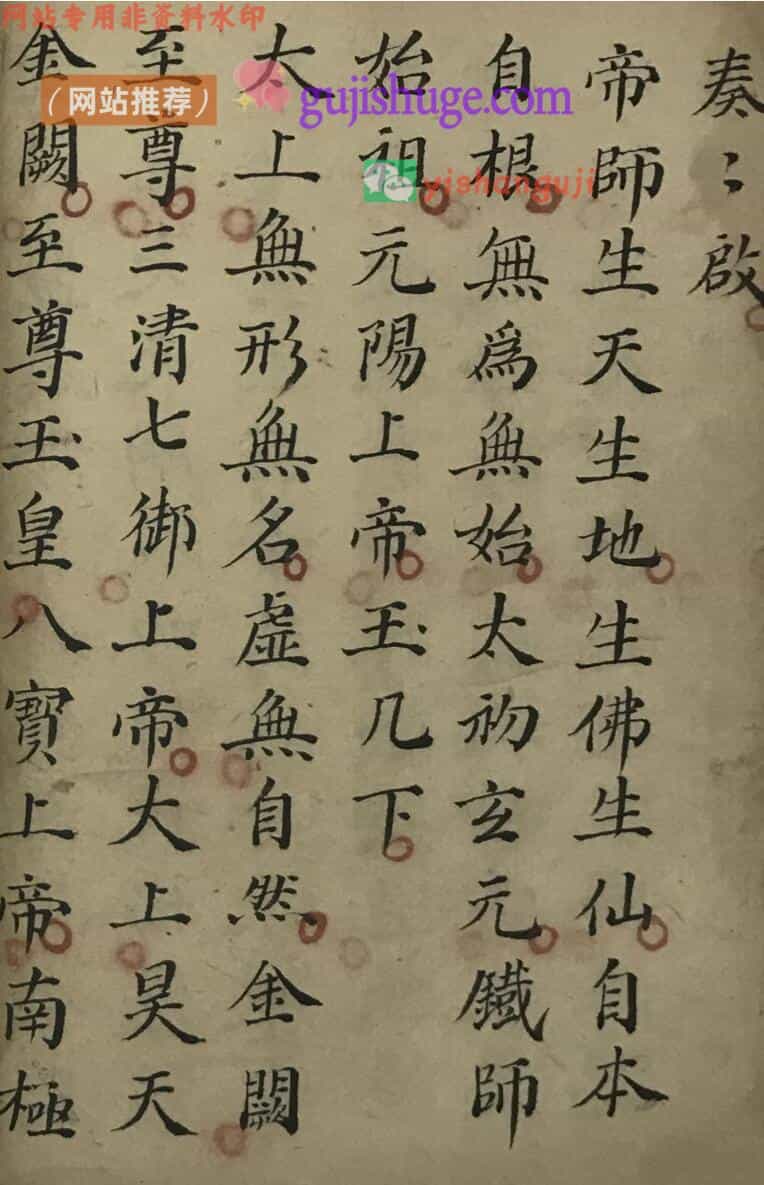 网站专用非资料水印
（网站推荐）
gujishuge.com
yishanguji
奏〻啟
帝師生天生地生佛生仙自本
自根無為無始太初玄元鐵師
始祖元陽上帝玉几下
太上無形無名虛無自然金闕
至尊三清七御上帝大上昊天
金闕至尊玉皇八寶上帝南極